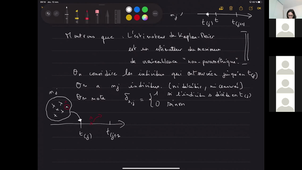 m_j
t_(j) t t_(j+1)
Montrons que l'estimateur de Kaplan-Meier
est un estimateur du maximum
de vraisemblance "non-paramétrique".
On considère les individus qui ont survécu jusqu'en t_(j)
On a m_j individus (ni décédés, ni censurés)
On note δ_ij = { 1 si l'individu i décède en t_(j)
0 sinon
m_j
t_(j) t_(j+1)